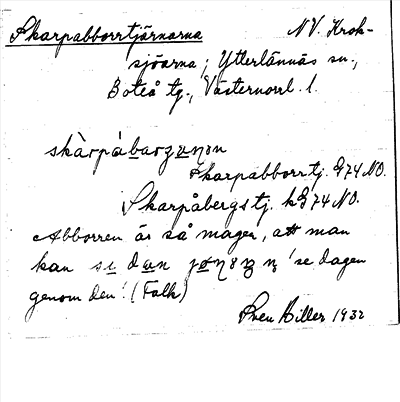 Skarpabborrtjärnarna NV. Krok-
sjöarna; Ytterlännäs sn.,
Boteå tg., Västernorrl. l.
skàrpábarʒɯnon
Skarpabborrtj. G74NO.
Skarpåbergstj. kG74NO.
Abborren är så mager, att man
kan 'se dagen
genom den'. (Folk)
Sven Hiller 1932